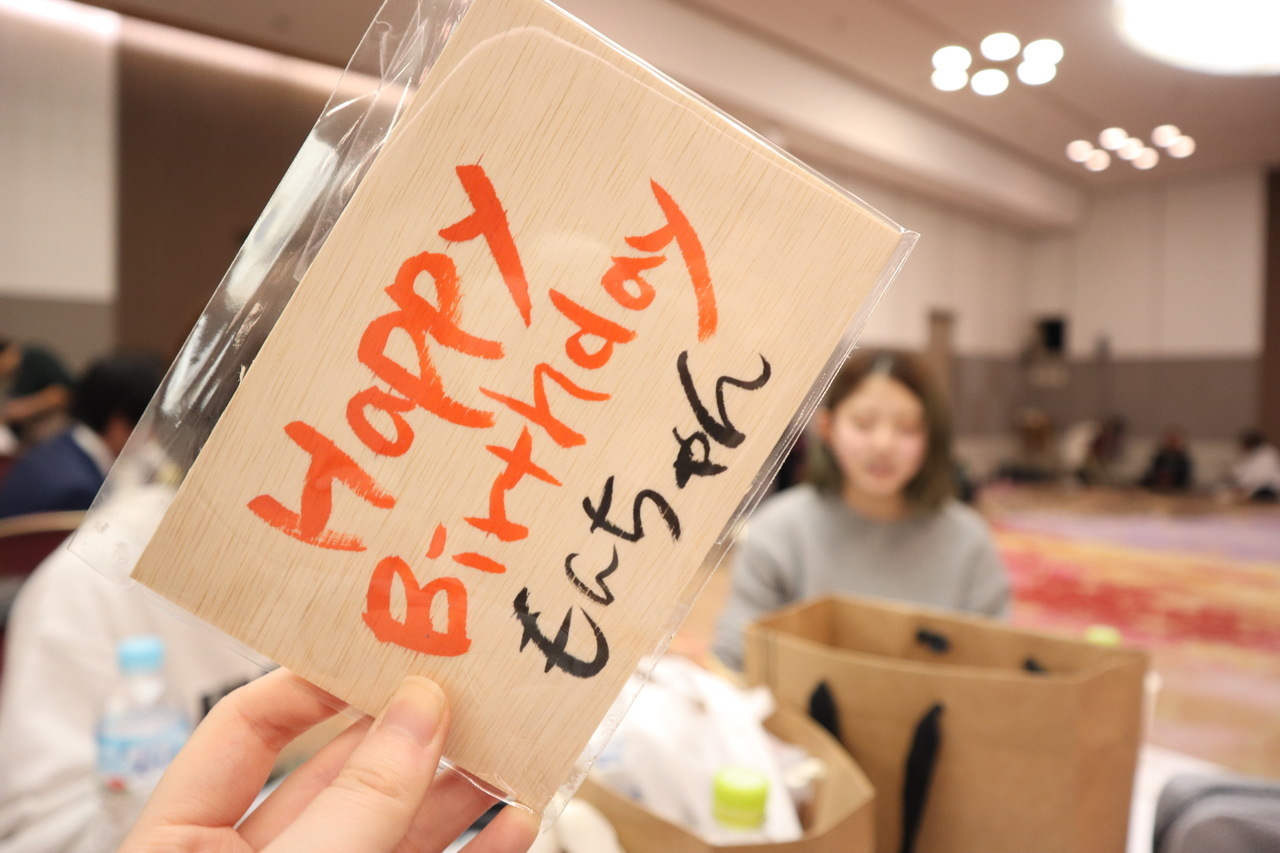 Happy
Birthday
もえちゃん